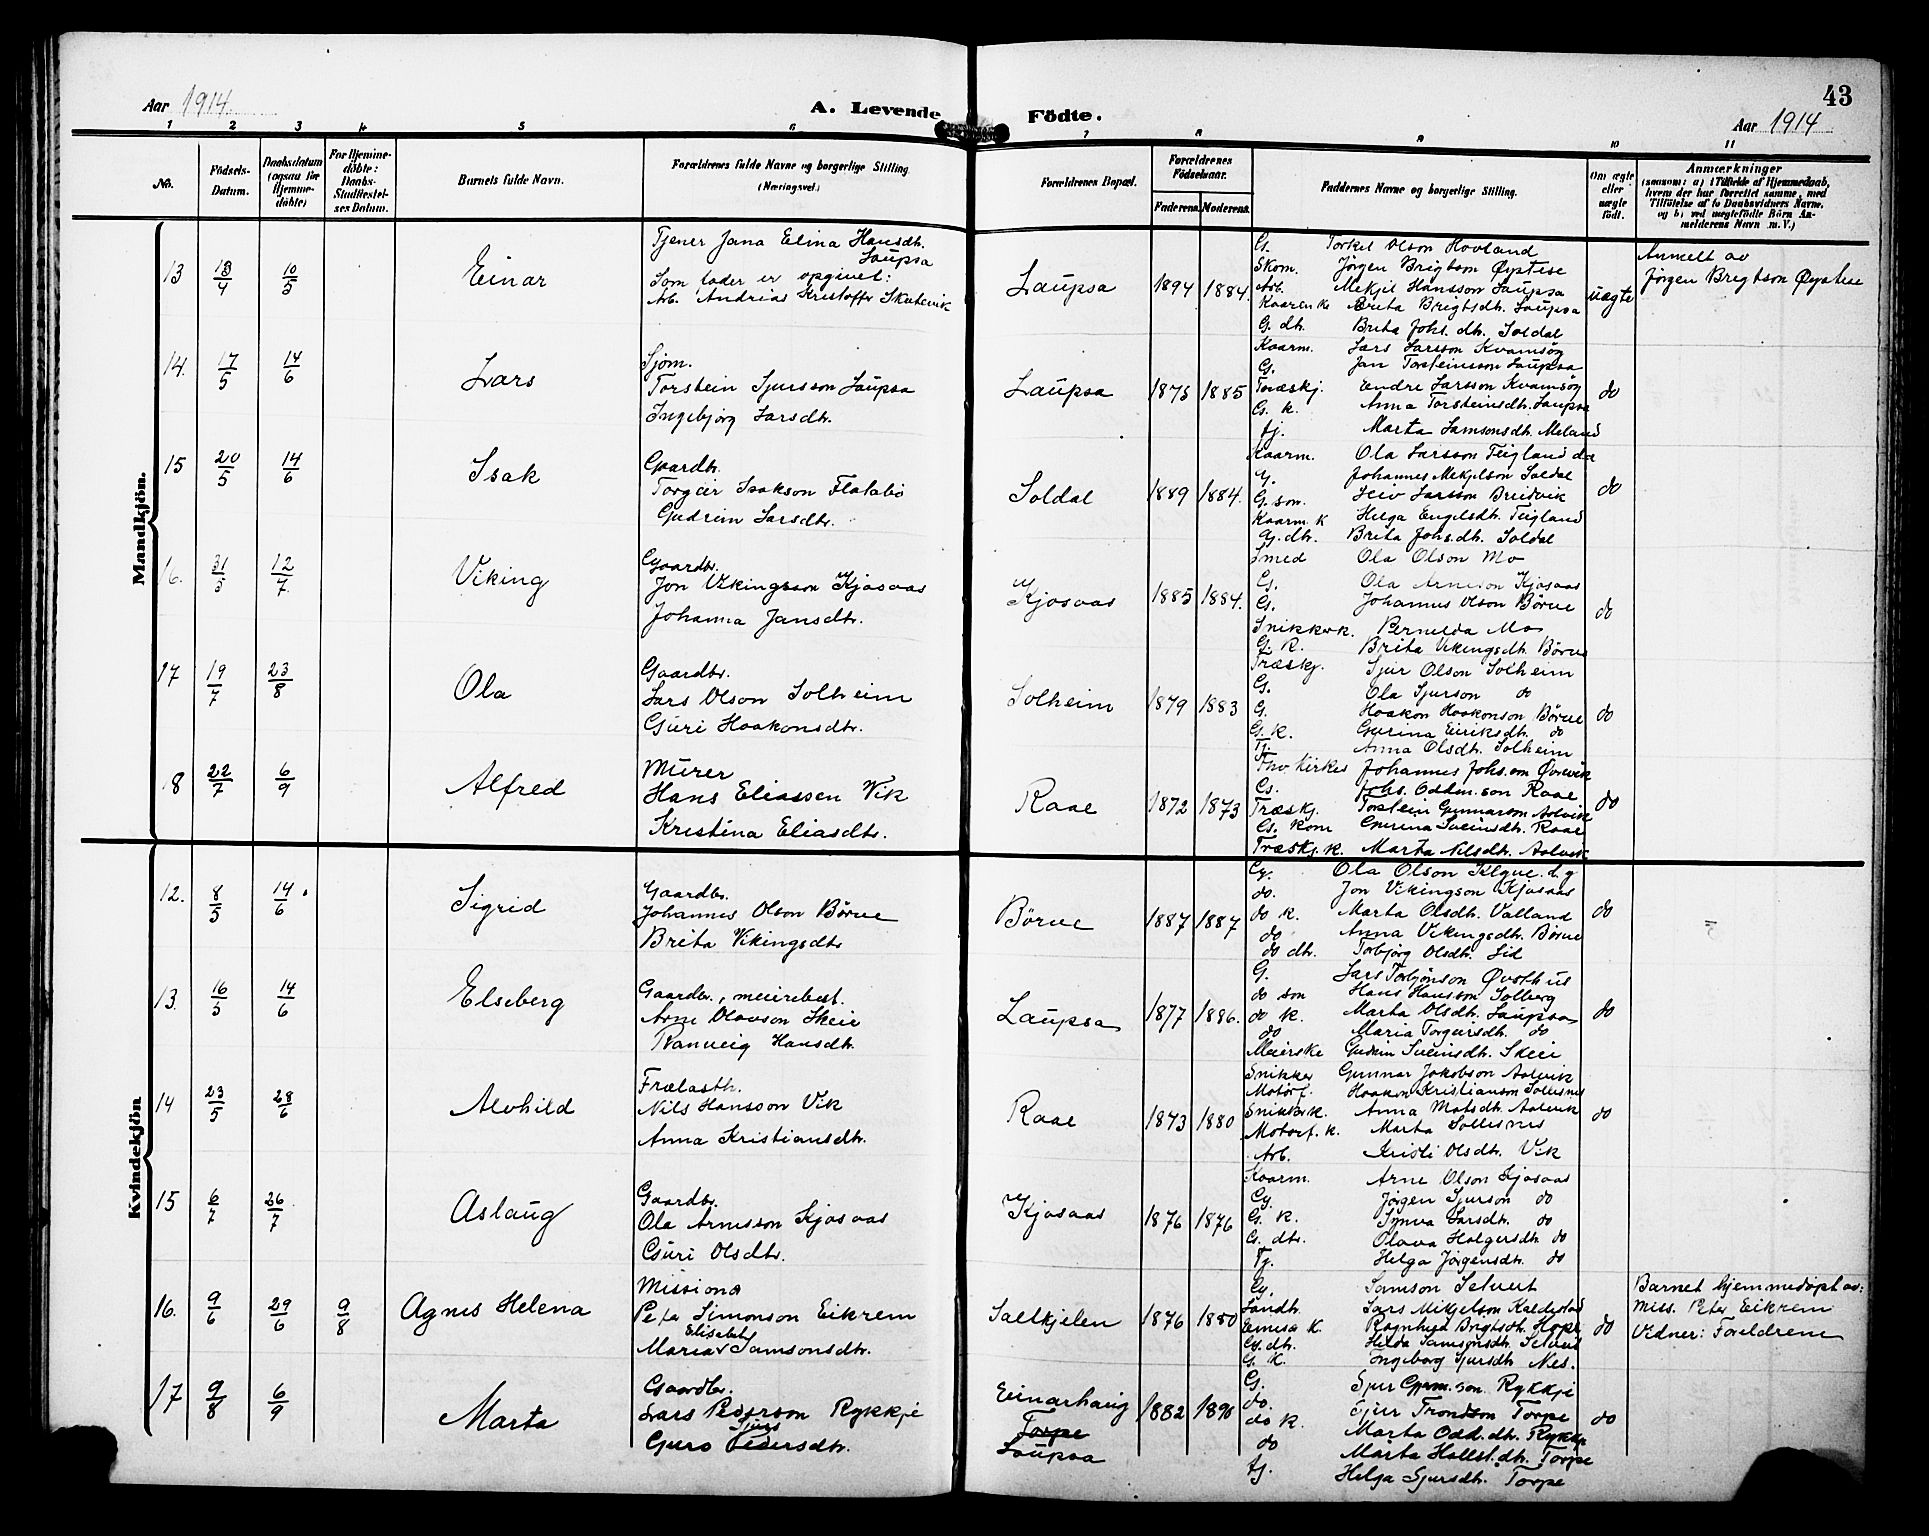 43
Aar 1914.
A. Levende
Födte.
Aar 1914
1 2 3 4 5 6 7 8 9 10 11
No.
Födsels-Datum.
Daabsdatum (ogsaa for Hjemme-döbte)
For Hjemme-döbte: Daabs-Stadfæstel-ses Datum.
Barnets fulde Navn.
Forældrenes fulde Navne og borgerlige Stilling (Næringsvei.)
Forældrenes Bopæl.
Forældrenes Födselsaar.
Faderens. Moderens.
Faddernes Navne og borgerlige Stilling.
Om ægte eller uægte födt.
Anmærkninger
(saasom: a) i Tilfælde af Hjemmedaab, hvem der har forrettet samme, med Tilföielse af to Daabsvidners Navne, og b) ved uægtefödte Börn An-melderens Navn m. V.)
Mandkjön.
13 13/4 10/5 Einar
Tjener Jana Elina Hansdtr. Laupsa
Som fader er opgivet:
Arb. Andrias Kristoffr Skutevik
Laupsa 1894 1884.
G. Torkel Olson Hovland
Skom. Jørgen Brigtson Øystese
Arb. Mekjel Hansson Laupsa
Kaarm k Brita Brigtsdtr. Laupsa
G. dtr. Brita Johs. dtr. Soldal
uægte
Anmelt av
Jørgen Brigtson Øystese
14. 17/5 14/6 Lars
Sjøm.
Torstein Sjursson Laupsa
Ingebjørg Larsdtr.
Laupsa 1875 1885
Kaarm. Lars Larsson Kvamsøy
G. Jan Torsteinsson Laupsa
Træskj. Endre Larsson Kvamsøy
G. k. Anna Torsteinsdtr. Laupsa
tj. Marta Samsonsdtr. Meland
do
15 20/5 14/6 Isak
Gaardbr.
Torgeir Isakson Flatabø
Gudrun Larsdtr.
Soldal 1889 1884.
Kaarm. Ola Larsson Teigland
G. Johannes Mekjelson Soldal
G. son. Larsson Breidvik
Kaarm. k Helga Engelsdtr. Teigland
G. dtr. Brita Johs.dtr. Soldal
do
16. 31/5 12/7 Viking
Gaardbr.
Jon Vikingsson Kjosaas
Johanna Jansdtr.
Kjosaas 1885 1884.
Smed Ola Olson Mo
G. Ola Arneson Kjosaas
G. Johannes Olson Börve
Snikkerk. Bernilda Mo
G. K. Brita Vikingsdtr. Börve
do
17 19/7 23/8 Ola
Gaardbr.
Lars Olson Solheim
Guri Haakonsdtr.
Solheim 1879 1883
Træskj. Sjur Olson Solheim
G. Ola Sjurson do
G. Haakon Haakonson Börve
G. K. Gurina Eiriksdtr. do
Tj. Anna Olsdtr. Solheim
do
18 22/7 6/9 Alfred
Murer
Hans Eliassen Vik
Kristina Eliasdtr.
Raae 1872 1873
Johannes Johs.son Øvrevik
G. Johs. Odtm.son Raae
Træskj. Torstein Gunnarson Aalvik
G. kone Gurina Sveinsdtr. Raae
Træskj. k. Marta Nilsdtr. Aalvik
do
Kvindekjön
12. 8/5 14/6 Sigrid
Gaardbr.
Johannes Olson Börve
Brita Vikingsdtr
Börve 1887 1887
G. Ola Olson Klyve
do. Jon Vikingson Kjosaas
do k. Marta Olsdtr. Valland
do Anna Vikingsdtr. Börve
do dtr. Torbjørg Olsdtr. Lid
do
13. 16/5 14/6 Elseberg
Gaardbr., meieribest.
Arne Olavson Skeie
Ranveig Hansdtr.
Laupsa 1877 1886.
G. Lars Torbjönson Øvsthus
do son Hans Hansson Solberg
do k. Marta Olsdtr. Laupsa
do Maria Torgeirsdtr. do
Meierske Gudrun Sveinsdtr. Skeie
do
14 23/5 28/6 Alvhild
Frælasth.
Nils Hansson Vik
Anna Kristiansdtr.
Raae 1873 1880
Snikker Gunnar Jakobson Aalvik
Motorf. Haakon Kristianson Sollesnes
Snikkerk. Anna Matsdtr. Aalvik
Motorf. k. Marta Sollesnes
Arb. Kristi Olsdtr. Vik
do
15 6/7 26/7 Aslaug
Gaardbr.
Ola Arnesson Kjosaas
Guri Olsdtr.
Kjosaas 1876 1876
Kaarm. Arne Olson Kjosaas
G. Jørgen Sjurson do
G. K. Synva Larsdtr. do
G. dtr. Olava Holgersdtr do
Tj. Helga Jørgensdtr. do
16. 9/6 29/6 9/8 Agnes Helena
Missionær
Peter Simonson Eikrem
Elisabet
Maria Samsonsdtr.
Saltkjelen 1876 1880
G. Samson Selvert
Landh. Lars Mikjelson Kaldestad
K. Ragnhild Brigtsdtr. Hope
G. dtr. Hilda Samsonsdtr. Selvert
G. K. Ingeborg Sjursdtr Nes.
do
Barnet hjemmedöpt av:
Miss. Peter Eikrem
Vidner: Foreldrene
17 9/8 6/9 Marta
Gaardbr.
Lars Pederson Rykkje
Sjurs
Guro Pedersdtr.
Einarhaug
Torpe
Laupsa
1882 1890
G. Sjur Gjerm.son. Rykkje
do. Sjur Trondson Torpe
do k. Marta Odd.dtr. Rykkje
do Marta Hallst.dtr. Torpe
tj. Helga Sjursdtr. Torpe
do